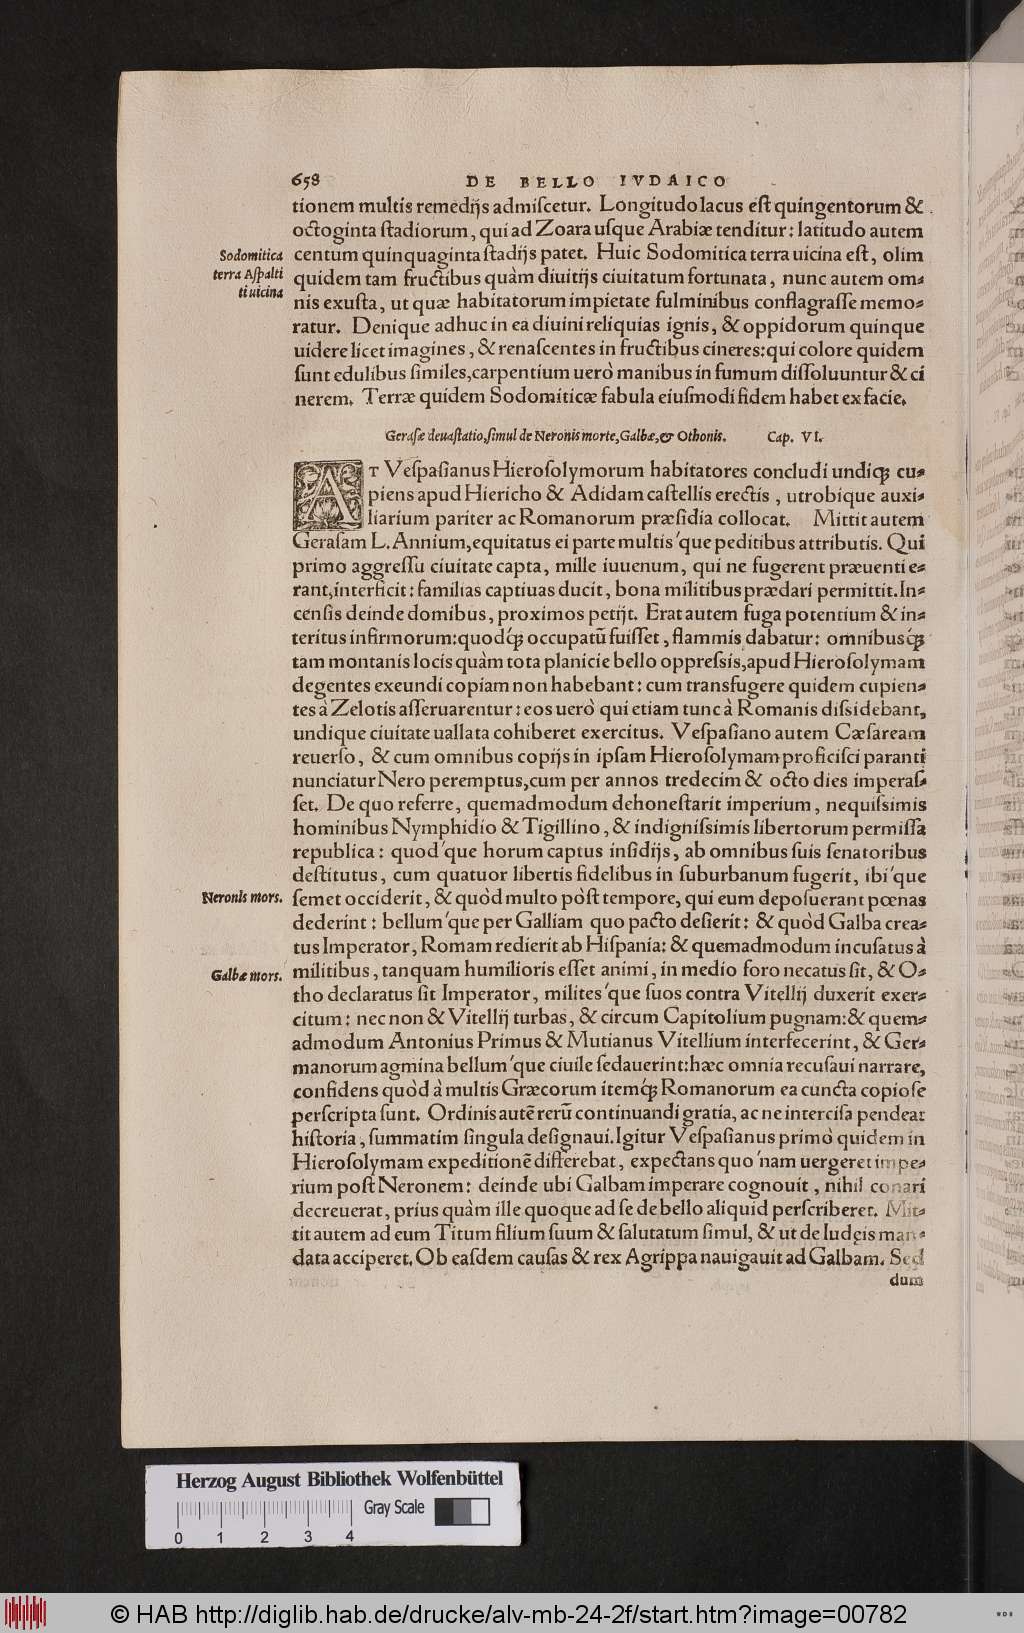 658 DE BELLO IVDAICO
tionem multis remedijs admiſcetur. Longitudo lacus eſt quingentorum &
octoginta ſtadiorum, qui ad Zoara uſque Arabiæ tenditur: latitudo autem
Sodomitica
terra Aſpalti
ti uicina
centum quinquaginta ſtadijs patet. Huic Sodomitica terra uicina eſt, olim
quidem tam fructibus quàm diuitijs ciuitatum fortunata, nunc autem om⸗
nis exuſta, ut quæ habitatorum impietate fulminibus conflagraſſe memo⸗
ratur. Denique adhuc in ea diuini reliquias ignis, & oppidorum quinque
uidere licet imagines, & renaſcentes in fructibus cineres: qui colore quidem
ſunt edulibus ſimiles, carpentium uerò manibus in fumum diſſoluuntur & ci
nerem. Terræ quidem Sodomiticæ fabula eiuſmodi fidem habet ex facie.
Geraſæ deuaſtatio, ſimul de Neronis morte, Galbæ, & Othonis. Cap. VI.
AT Veſpaſianus Hieroſolymorum habitatores concludi undiqꝫ cu⸗
piens apud Hiericho & Adidam caſtellis erectis, utrobique auxi⸗
liarium pariter ac Romanorum præſidia collocat. Mittit autem
Geraſam L. Annium, equitatus ei parte multis'que peditibus attributis. Qui
primo aggreſſu ciuitate capta, mille iuuenum, qui ne fugerent præuenti e⸗
rant, interficit: familias captiuas ducit, bona militibus prædari permittit. In⸗
cenſis deinde domibus, proximos petijt. Erat autem fuga potentium & in⸗
teritus infirmorum: quod'qꝫ occupatũ fuiſſet, flammis dabatur: omnibusqꝫ
tam montanis locis quàm tota planicie bello oppreſsis, apud Hieroſolymam
degentes exeundi copiam non habebant: cum transfugere quidem cupien⸗
tes à Zelotis aſſeruarentur: eos uerò qui etiam tunc à Romanis diſsidebant,
undique ciuitate uallata cohiberet exercitus. Veſpaſiano autem Cæſaream
reuerſo, & cum omnibus copijs in ipſam Hieroſolymam proficiſci paranti
nunciatur Nero peremptus, cum per annos tredecim & octo dies imperaſ⸗
ſet. De quo referre, quemadmodum dehoneſtarit imperium, nequiſsimis
hominibus Nymphidio & Tigillino, & indigniſsimis libertorum permiſſa
republica: quod'que horum captus inſidijs, ab omnibus ſuis ſenatoribus
deſtitutus, cum quatuor libertis fidelibus in ſuburbanum fugerit, ibi'que
Neronis mors.
ſemet occiderit, & quòd multo pòſt tempore, qui eum depoſuerant pœnas
dederint: bellum'que per Galliam quo pacto deſierit: & quòd Galba crea⸗
tus Imperator, Romam redierit ab Hiſpania: & quemadmodum incuſatus à
Galbæ mors.
militibus, tanquam humilioris eſſet animi, in medio foro necatus ſit, & O⸗
tho declaratus ſit Imperator, milites'que ſuos contra Vitellij duxerit exer⸗
citum: nec non & Vitellij turbas, & circum Capitolium pugnam: & quem⸗
admodum Antonius Primus & Mutianus Vitellium interfecerint, & Ger⸗
manorum agmina bellum'que ciuile ſedauerint: hæc omnia recuſaui narrare,
confidens quòd à multis Græcorum item'qꝫ Romanorum ea cuncta copioſe
perſcripta ſunt. Ordinis autẽ rerũ continuandi gratia, ac ne interciſa pendeat
hiſtoria, ſummatim ſingula deſignaui. Igitur Veſpaſianus primò quidem in
Hieroſolymam expeditionẽ differebat, expectans quo'nam uergeret impe⸗
rium poſt Neronem: deinde ubi Galbam imperare cognouit, nihil conari
decreuerat, prius quàm ille quoque ad ſe de bello aliquid perſcriberet. Mit⸗
tit autem ad eum Titum filium ſuum & ſalutatum ſimul, & ut de Iudęis man⸗
data acciperet. Ob eaſdem cauſas & rex Agrippa nauigauit ad Galbam. Sed
dum
Herzog August Bibliothek Wolfenbüttel
Gray Scale
0 1 2 3 4
© HAB http://diglib.hab.de/drucke/alv-mb-24-2f/start.htm?image=00782